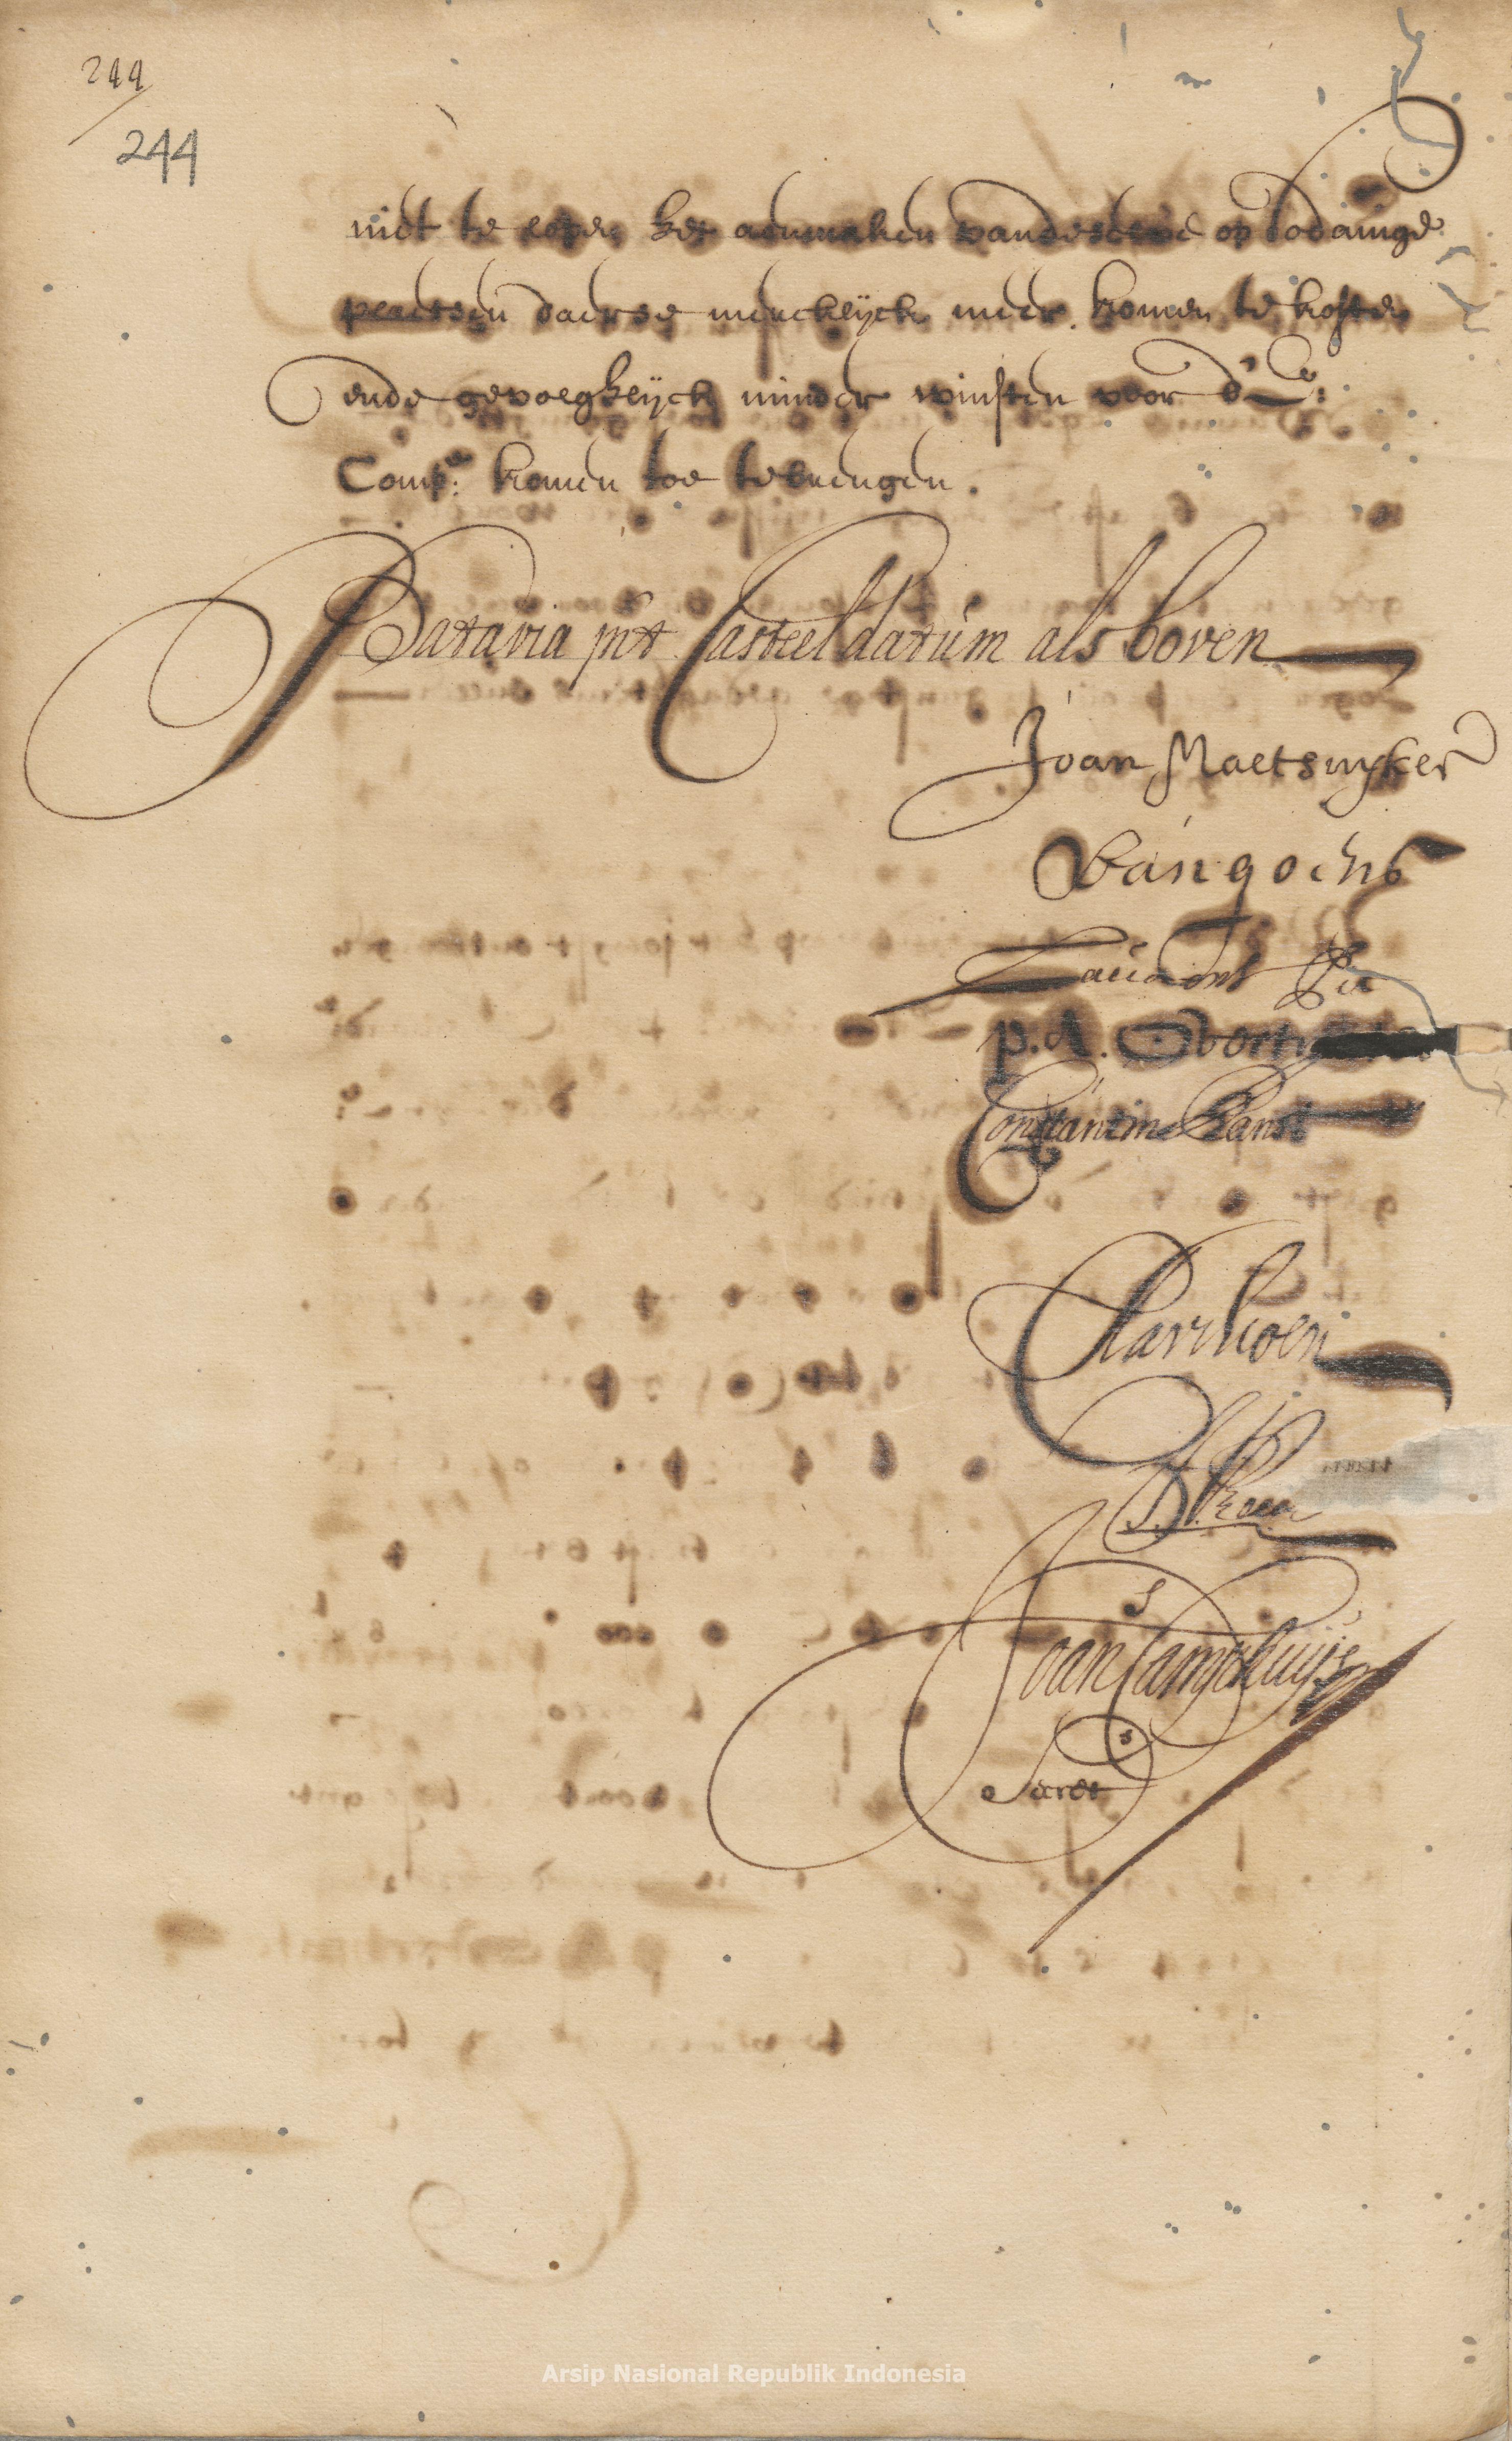 244
244
niet te copen het aenmaken vandeselve op sodanige
plaetsen daerse merckelijck meer komen te kosten
ende gevoeghlijck minder winsten voor d' E:
Compe: komen toe te brengen.
Batavia int Casteel datum als boven
Joan Maetsuyker
van goens
Laurens Pit
p.A. Overtwater
Constantin Ranst
Joan Camphuijs
Secrets
Arsip Nasional Republik Indonesia